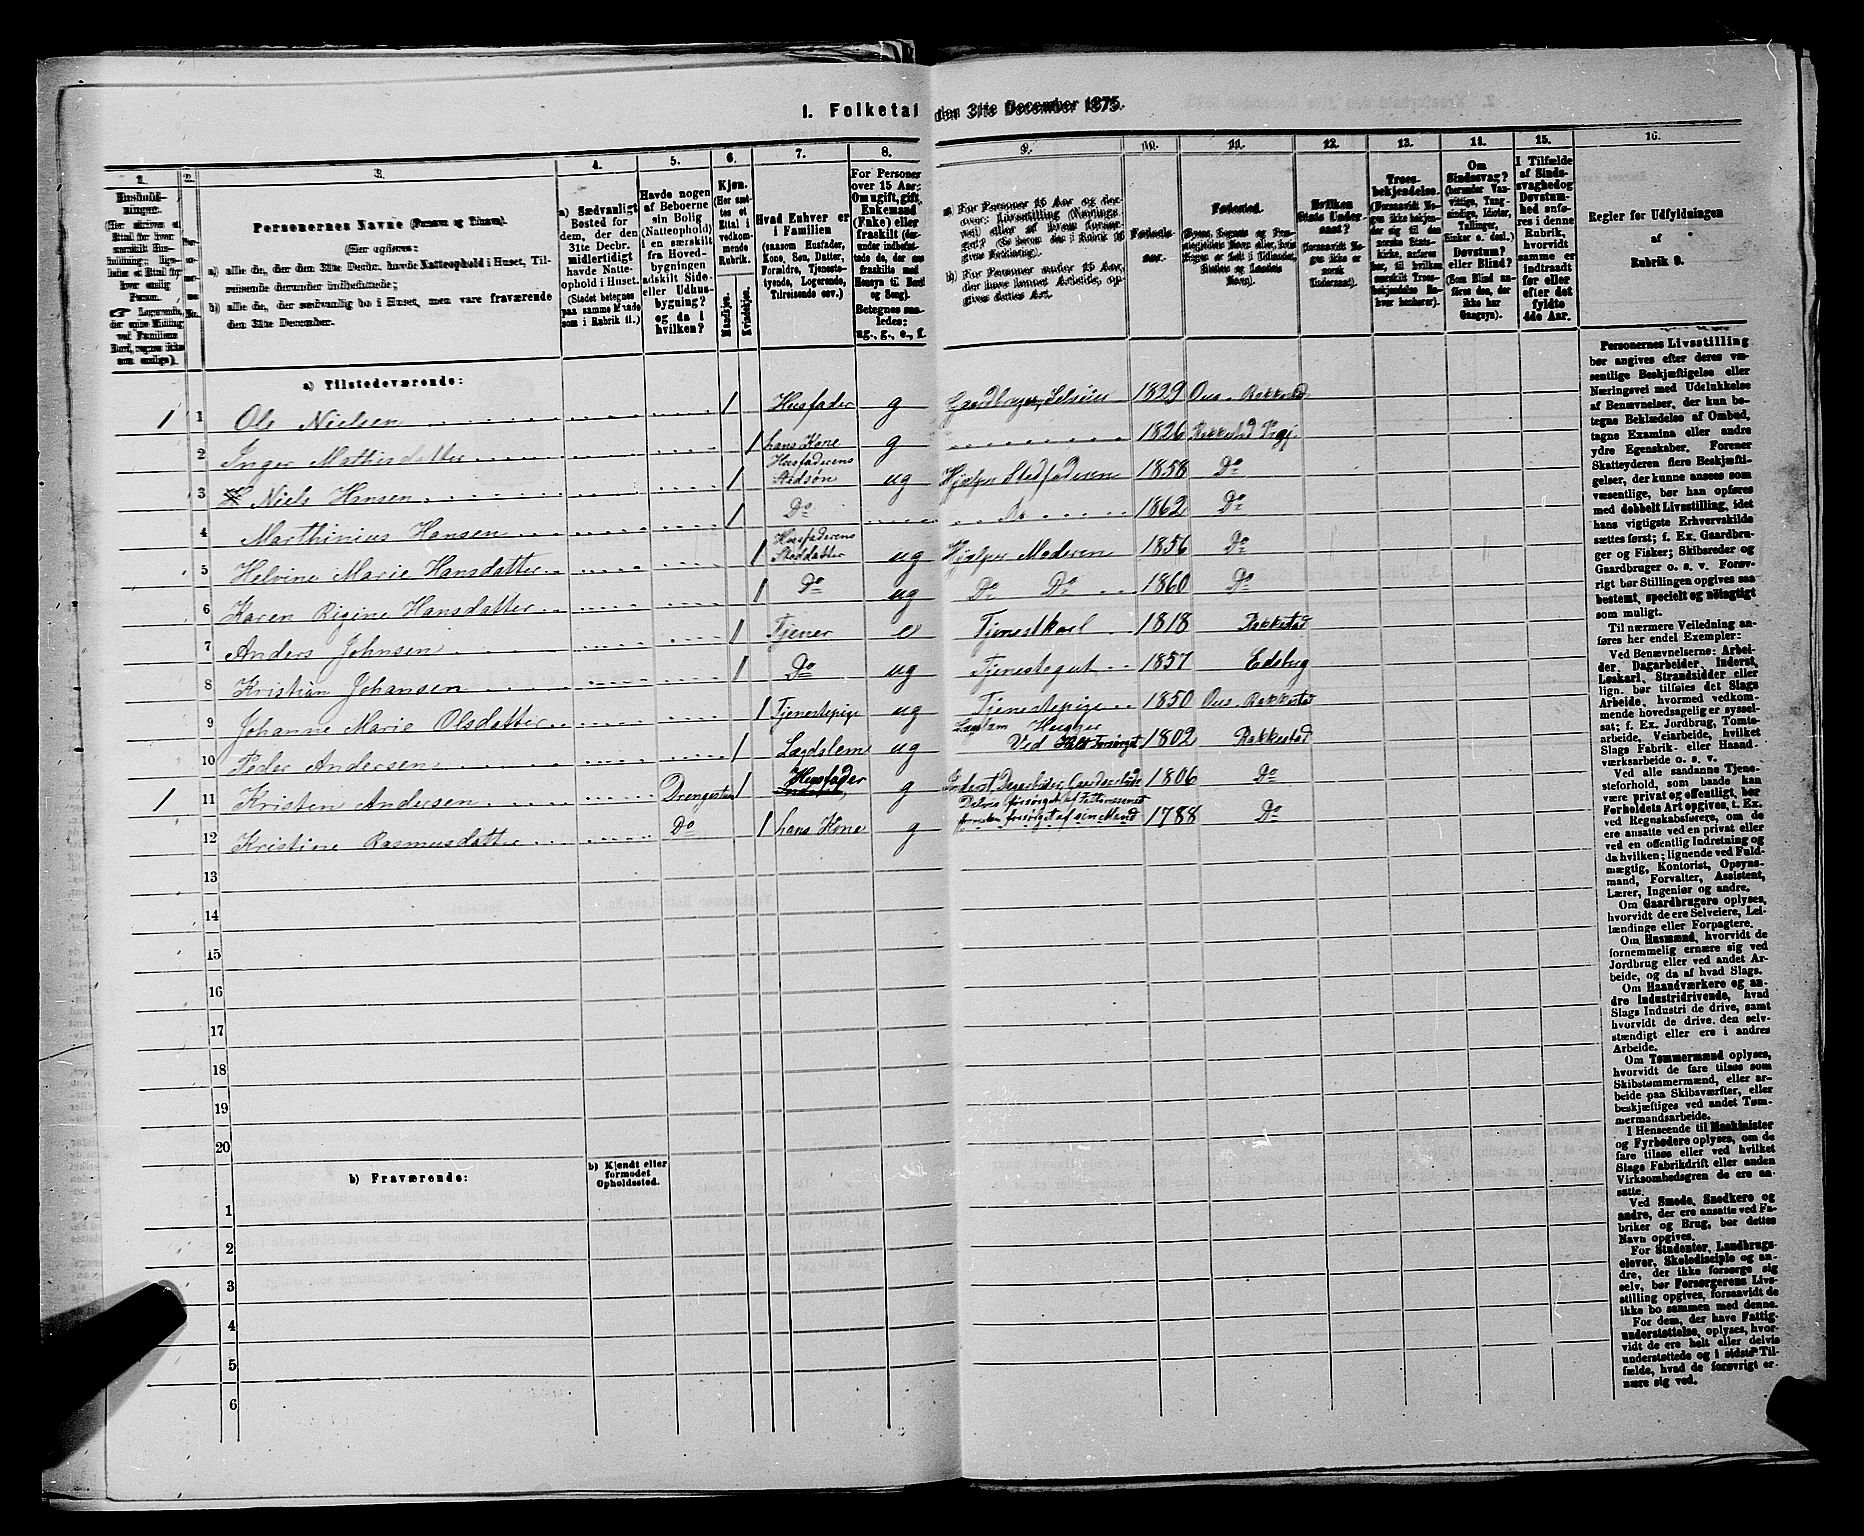 1. Folketal den 31te December 1875.
1. 2. 3. 4. 5. 6. 7. 8. 9. 10. 11. 12. 13. 14. 15. 16.
Personernes Navne (Fornavn og Tilnavn).
(Her opføres:
a) alle de, der den 31te Decbr. havde Natteophold i Huset, Tilreisende derunder indbefattede;
b) alle de, der sædvanlig bo i Huset, men vare fraværende
den 31te December.
a) Sædvanligt
Bosted for
dem, der den
31te Decbr.
midlertidigt
havde Natteophold i Huset.
(Stedet betegnes
paa samme Maade
som i Rubrik 11.)
Havde nogen
af Beboerne
sin Bolig
(Natteophold)
i en særskilt
fra Hovedbygningen
adskilt Side-
eller Udhusbygning?
og da i
hvilken?
Kjøn.
Mandkjøn.
Kvindekjøn.
Hvad Enhver er
i Familien
(saasom Husfader,
Kone, Søn, Datter,
Forældre, Tjenestetyende, Logerende,
Tilreisende osv.)
For Personer
over 15 Aar:
Om ugift, gift,
Enkemand
(Enke) eller
fraskilt
Betegnes saaledes:
ug., g., e., f.
Fødselsaar.
Fødested.
Hvilken
Stats Undersaat?
Troesbekjendelse.
Om
Sindssvag?
Døvstum?
eller Blind?
I Tilfælde
af Sindssvaghed og
Døvstumhed anføres i denne
Rubrik,
hvorvidt
samme er
indtraadt
før eller
efter det
fyldte
4de Aar.
Regler for Udfyldningen
af
Rubrik 9.
a) Tilstedeværende:
1 1 Ole Nielsen 1 Husfader g Gaardbruger, Selveier 1829 Ous. Rakkestad
2 Inger Mathisdatter 1 hans Kone g 1826 Rakkestad Prgj.
3 Niels Hansen 1 Husfaderens Stedsøn ug Hjælper Stedfaderen 1858 Do
4 Marthinius Hansen 1 Do Do 1862 Do
5 Helvine Marie Hansdatter 1 Husfaderens Steddatter ug Hjælper Moderen 1856 Do
6 Karen Rigine Hansdatter 1 Do ug Do Do 1860 Do
7 Anders Johnsen 1 Tjener e Tjenestkarl 1818 Rakkestad
8 Kristian Johansen 1 Do ug Tjenestegut 1857 Edsbrg
9 Johanne Marie Olsdatter 1 Tjenestepige ug Tjenestepige 1850 Ous. Rakkestad
10 Peder Andersen 1 Lægdslem ug Ved Forsørget 1802 Rakkestad
1 11 Kristen Andersen Drengestuen 1 Husfader g Inderst, Dagarbeider, Gaardsarbeide Delvis forsørget af Fattivæsenet 1806 Do
12 Kristine Rasmusdatter Do 1 hans Kone g forsørget af sin Mand 1788 Do
13
14
15
16
17
18
19
20
b) Fraværende:
b) Kjendt eller
formodet
Opholdssted.
1
2
3
4
5
6
Personernes Livsstilling
bør angives efter deres væsentlige Beskjæftigelse eller
Næringsvei med Udelukkelse
af Benævnelser, der kun betegne Beklædelse af Ombud,
tagne Examina eller andre
ydre Egenskaber. Forener
Skatteyderen flere Beskjæftigelser, der kunne ansees som
væsentlige, bør han opføres
med dobbelt Livsstilling, idet
hans vigtigste Erhvervskilde
sættes først; f. Ex. Gaardbruger og Fisker; Skibsreder og
Gaardbruger o. s. v. Forøvrigt bør Stillingen opgives saa
bestemt, specielt og nøiagtigt
som muligt.
Til nærmere Veiledning anføres her endel Exempler:
Ved Benævnelserne: Arbeider, Dagarbeider, Inderst,
Løskarl, Strandsidder eller
lign. bør tilføies det Slags
Arbeide, hvormed vedkommende hovedsagelig er sysselsat; f. Ex. Jordbrug, Tomtearbeide, Veiarbeide, hvilket
Slags Fabrik- eller Haandværksarbeide o. s. v.
Ved alle saadanne Tjenesteforhold, som baade kan
være privat og offentligt, bør
Forholdets Art opgives, t. Ex.
ved Regnskabsførere, om de
ere ansatte ved en privat eller
ved en offentlig Indretning og
da hvilken; lignende ved Fuldmægtig, Kontorist, Opsynsmand, Forvalter, Assistent,
Lærer, Ingeniør og andre.
Om Gaardbrugere oplyses,
hvorvidt de ere Selveiere, Leilændinge eller Forpagtere.
Om Husmænd, hvorvidt de
fornemmelig ernære sig ved
Jordbrug eller ved andet Arbeide, og da af hvad Slags.
Om Haandværkere og andre Industridrivende, hvad
Slags Industri de drive, samt
hvorvidt de drive den selvstændigt eller ere i andres
Arbeide.
Om Tømmermænd oplyses,
hvorvidt de fare tilsøs som
Skibstømmermænd, eller arbeide paa Skibsværfter, eller
beskjæftiges ved andet Tømmermandsarbeide.
I Henseende til Maskinister
og Fyrbødere oplyses, om de
fare tilsøs eller ved hvilket
Slags Fabrikdrift eller anden
Virksomhedsgren de ere ansatte.
Ved Smede, Snedkere og
andre, der ere ansatte ved Fabriker og Brug, bør dettes
Navn opgives.
For Studenter, Landbrugselever, Skoledisciple og andre, der ikke forsørge sig
selv, bør Forsørgerens Livsstilling opgives, forsaavidt de
ikke bo sammen med denne.
For dem, der have Fattigunderstøttelse, oplyses, hvorvidt de ere helt eller delvis
understøttede og i sidste Tilfælde, hvad de forøvrigt ernære sig ved.